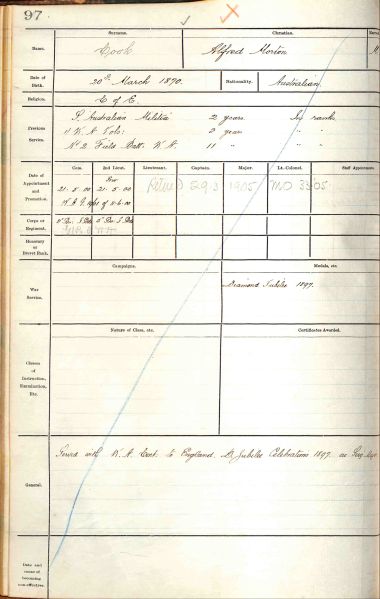 97
Surname.
Christian.
Name.
Cook
Alfred Morton
Date of Birth.
20th March 1870.
Nationality.
Australian
Religion.
C of E.
Previous Service.
S. Australian Militia 2 years. In ranks
W. A. Vols: 2 years " "
No 2 Field Batt: W. A. 11 " " "
Date of Appointment and Promotion.
Com.
2nd Lieut.
Lieutenant.
Captain.
Major.
Lt.-Colonel.
Staff Appointment.
21. 5. 00
21. 5. 00
Retired 29 3 1905
MO 33/05
Corps or Regiment.
Honorary or Brevet Rank.
War Service.
Campaigns.
Medals, etc.
Diamond Jubilee 1897.
Classes of Instruction, Examination, Etc.
Nature of Class, etc.
Certificates Awarded.
General.
Served with W. A. Cont. to England. D. Jubilee Celebrations 1897. as
Date and cause of becoming non-effective.